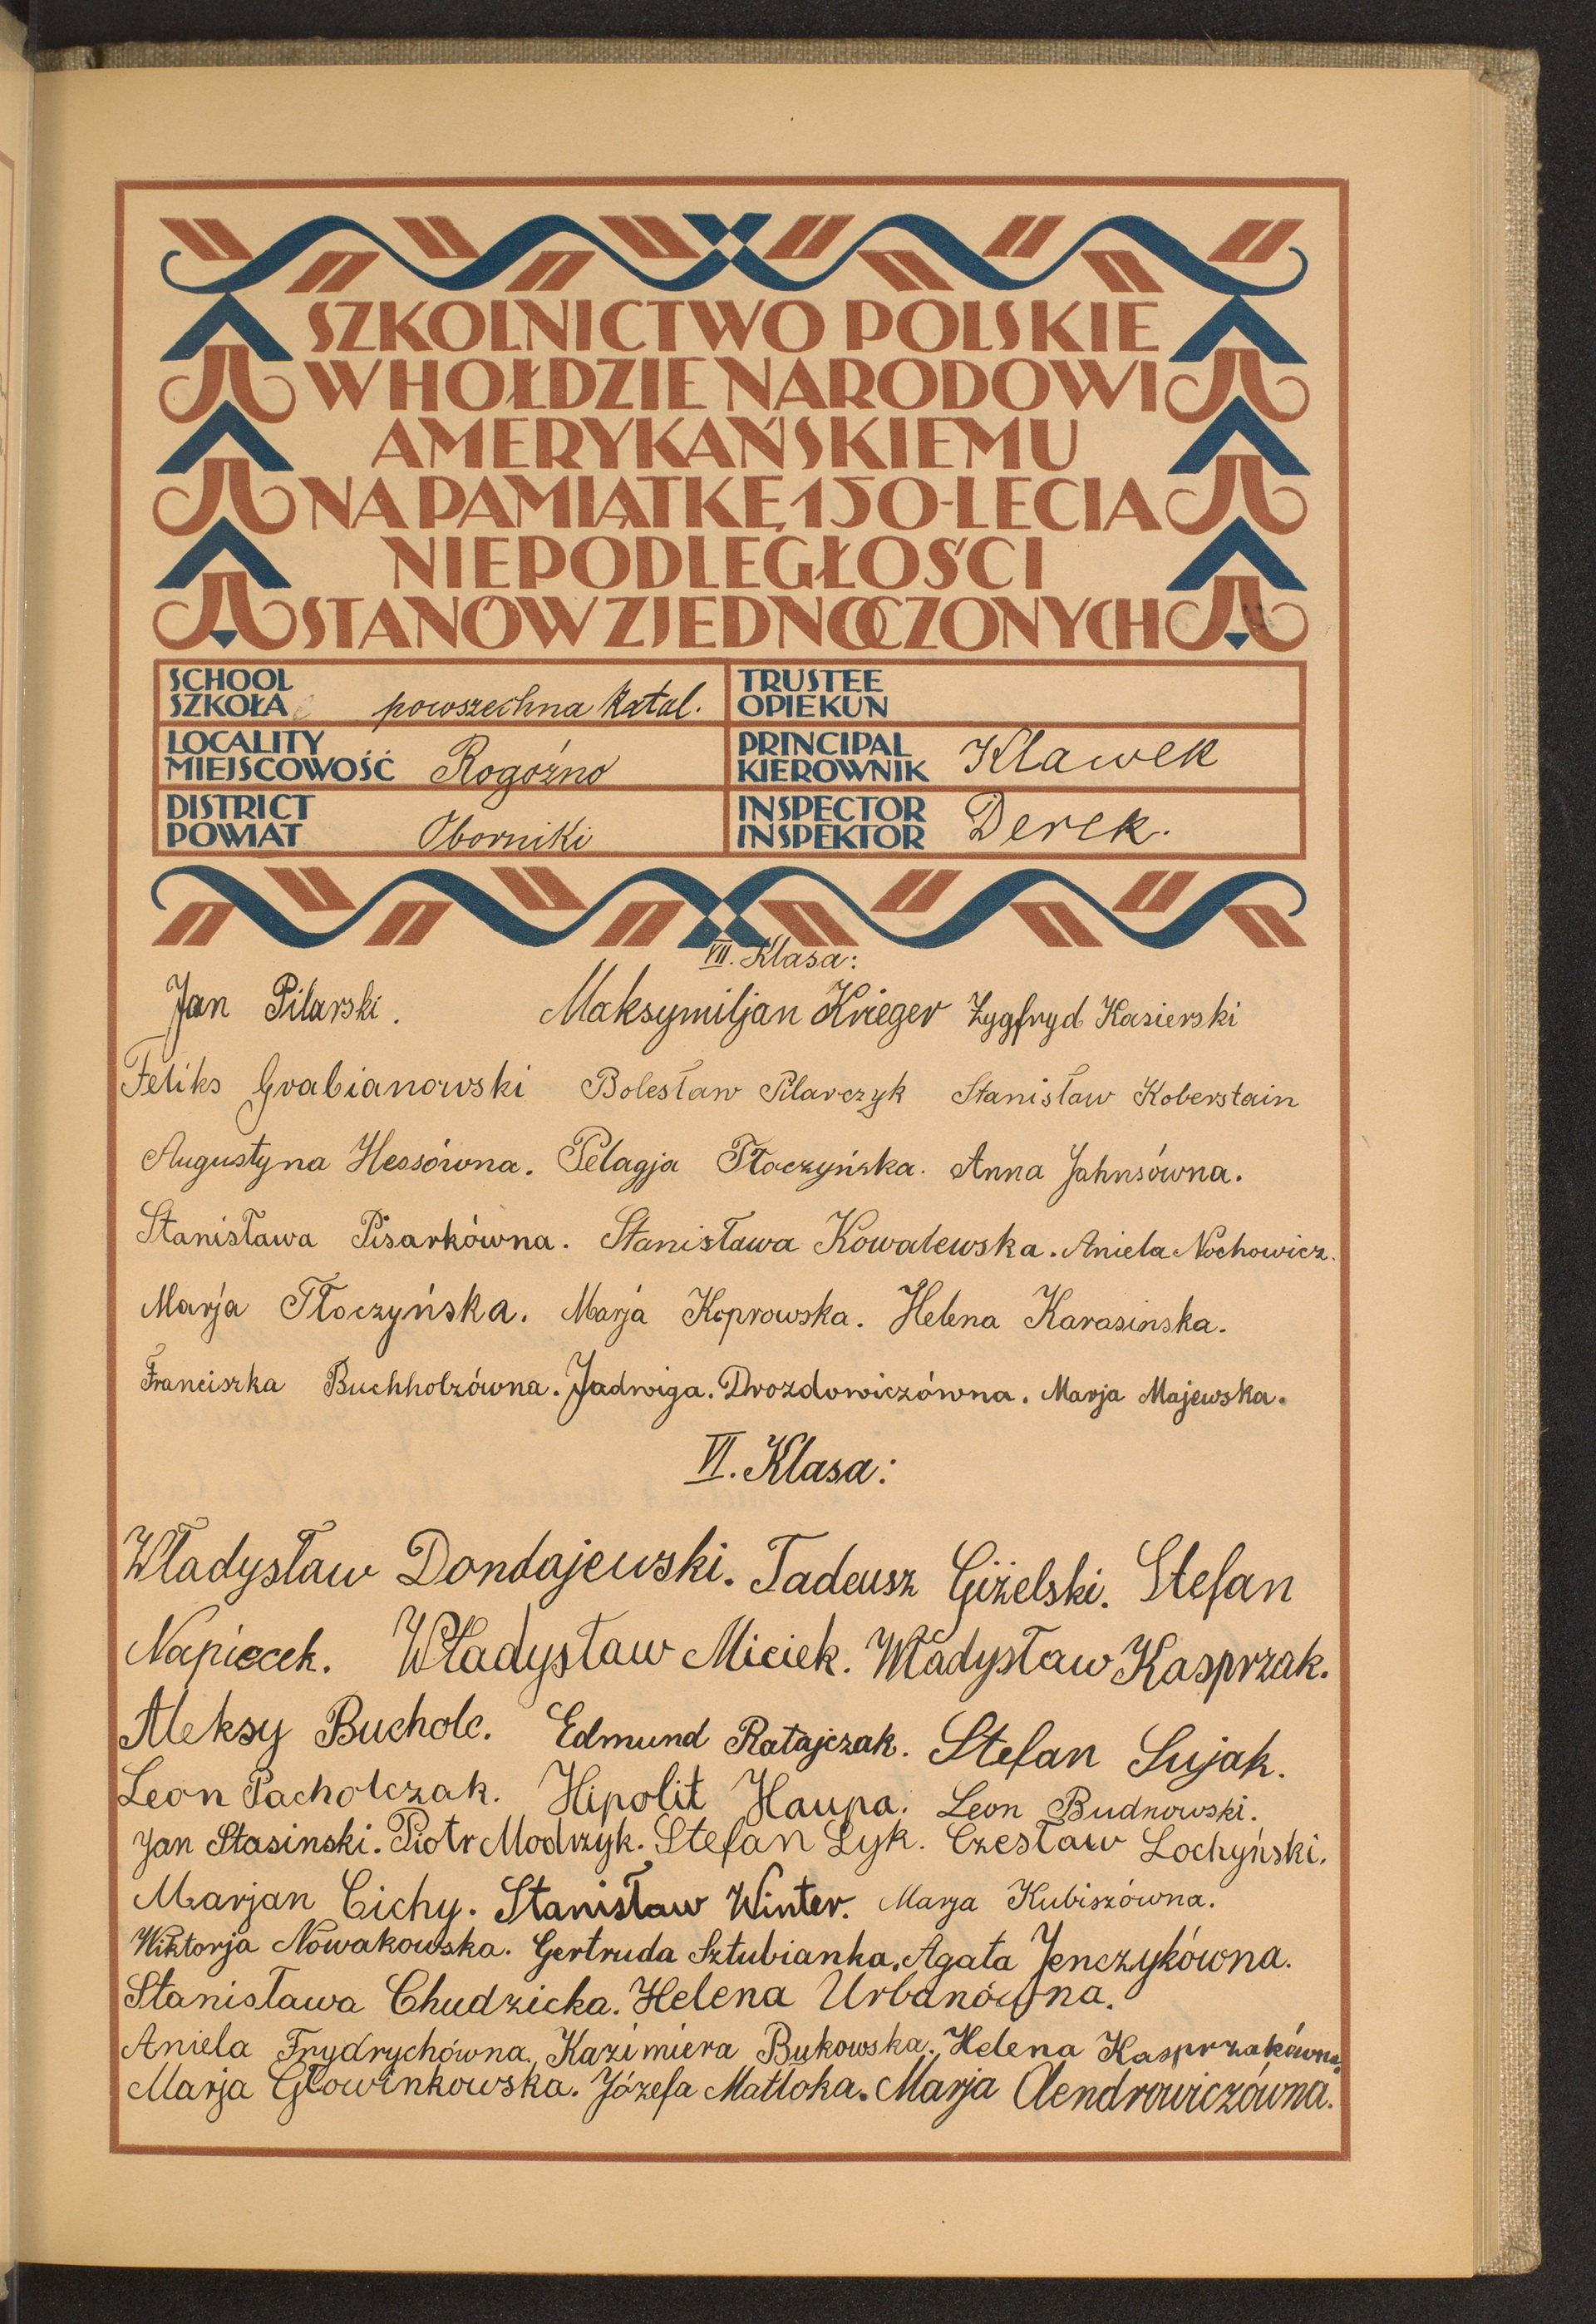 SZKOLNICTWO POLSKIE
W HOŁDZIE NARODOWI
AMERYKAŃSKIEMU
NA PAMIĄTKĘ 150-LECIA
NIEPODLEGŁOŚCI
STANÓW ZJEDNOCZONYCH
SCHOOL
SZKOŁA powszechna katol.
TRUSTEE
OPIEKUN
LOCALITY
MIEJSCOWOŚĆ Rogoźno
PRINCIPAL
KIEROWNIK Klawek
DISTRICT
POWIAT Oborniki
INSPECTOR
INSPEKTOR Derek.
VII. Klasa:
Jan Pilarski. Maksymiljan Krieger Zygfryd Kasierski
Feliks Grabianowski Bolesław Pilarczyk Stanisław Koberstain
Augustyna Hessówna. Pelagja Tłoczyńska. Anna Jahnsówna.
Stanisława Pisarkówna. Stanisława Kowalewska. Aniela Nochowicz.
Marja Tłoczyńska. Marja Koprowska. Helena Karasinska.
Franciszka Buchholzówna. Jadwiga. Drozdowiczówna. Marja Majewska.
VI. Klasa:
Władysław Dondajewski. Tadeusz Giżelski. Stefan
Napiecek. Władysław Miciek. Władysław Kasprzak.
Aleksy Bucholc. Edmund Ratajczak. Stefan Sujak.
Leon Pacholczak. Hipolit Haupa. Leon Budnowski.
Jan Stasinski. Piotr Modrzyk. Stefan Łyk. Czesław Lochyński.
Marjan Cichy. Stanisław Winter. Marja Kubiszówna.
Wiktorja Nowakowska. Gertruda Sztubianka. Agata Jenczykówna.
Stanisława Chudzicka. Helena Urbanówna.
Aniela Frydrychówna. Kazimiera Bukowska. Helena Kasprzakówna.
Marja Głowinkowska. Józefa Matłoka. Marja Olendrowiczówna.